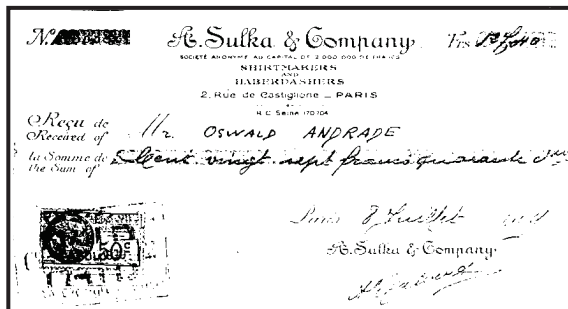 A. Sulka & Company Frs
SOCIÉTÉ ANONYME AU CAPITAL DE 2.000.000 DE FRANCS
SHIRTMAKERS
AND
HABERDASHERS
2, Rue de Castiglione _ PARIS
R.C. Seine 170704
Reçu de
Received of Mr. OSWALD ANDRADE
la Somme de Cent vingt sept francs quarante
the Sum of
Paris 8 Juillet
50c
A. Sulka & Company